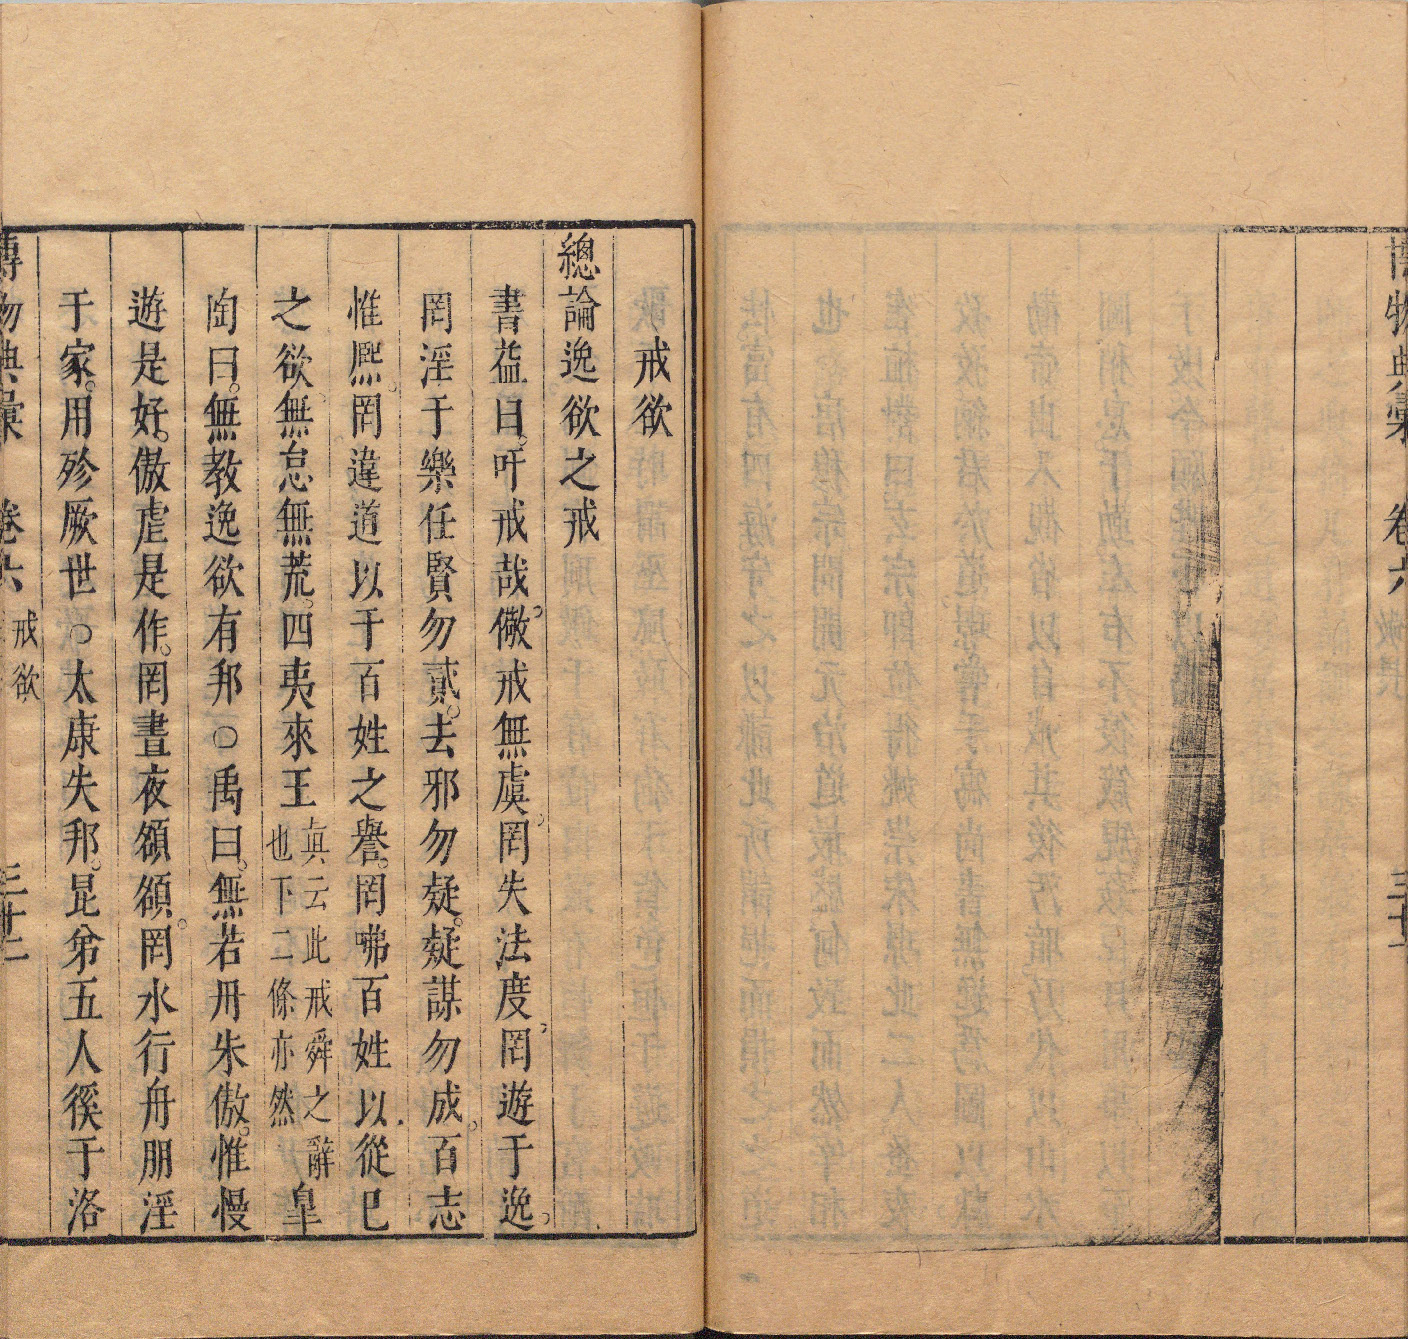 博物典彙 卷六 敬畏 三十一
戒欲
總論逸欲之戒
書益曰。吁戒哉。儆戒無虞。罔失法度。罔遊于逸。
罔淫于樂任賢勿貳。去邪勿疑。疑謀勿成。百志
惟熈。罔違道以于百姓之譽。罔咈百姓以從巳
之欲。無怠無荒。四夷來王真云此戒舜之辭也下二條亦然皐
陶曰。無教逸欲有邦○禹曰。無若丹朱傲。惟慢
遊是好。傲虐是作。罔晝夜頟頟。罔水行舟朋淫
于家。用殄厥世○太康失邦。昆弟五人徯于洛
博物典彙 卷六 戒欲 三十二